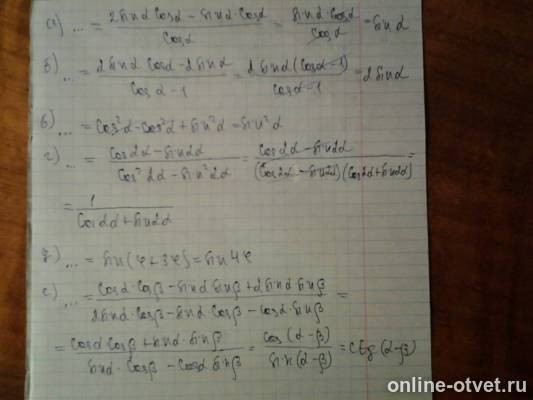 а) ... = (2sinα cosα − sinα·cosα)/cosα = (sinα·cosα)/cosα = sinα
б) ... = (2sinα cosα − 2sinα)/(cosα − 1) = (2sinα(cosα − 1))/(cosα − 1) = 2sinα
в) ... = cos²α − cos²α + sin²α = sin²α
г) ... = (cos2α − sin2α)/(cos²2α − sin²2α) = (cos2α − sin2α)/((cos2α − sin2α)(cos2α + sin2α)) =
= 1/(cos2α + sin2α)
д) ... = sin(φ + 3φ) = sin4φ
е) ... = (cosα·cosβ − sinα sinβ + 2sinα sinβ)/(2sinα·cosβ − sinα·cosβ − cosα·sinβ) =
= (cosα cosβ + sinα·sinβ)/(sinα·cosβ − cosα sinβ) = cos(α−β)/sin(α−β) = ctg(α−β)
online-otvet.ru